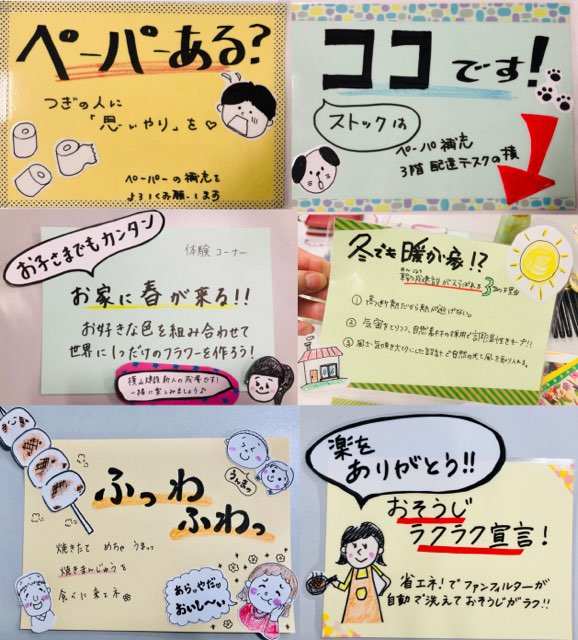 ペーパーある?
つぎの人に
「思いやり」を♡
ペーパーの補充を
よろしくお願いします
ココです!
ストックは
ペーパー補充
3階 配達デスクの横
お子さまでもカンタン
体験コーナー
お家に春が来る!!
お好きな色を組み合わせて
世界に1つだけのフラワーを作ろう!
一緒に楽しみましょう♪
冬でも暖か家!?
3つの
① 高断熱だから熱が逃げない。
ふっわ
ふわっ
うんまっ
焼きたて めちゃ うまって
焼きまんじゅうを
食べに来てネ
あらっ、やだ
おいし〜い
楽を
ありがとう!!
おそうじ
ラクラク宣言!
省エネ!でファンフィルターが
自動で洗えておそうじがラク!!